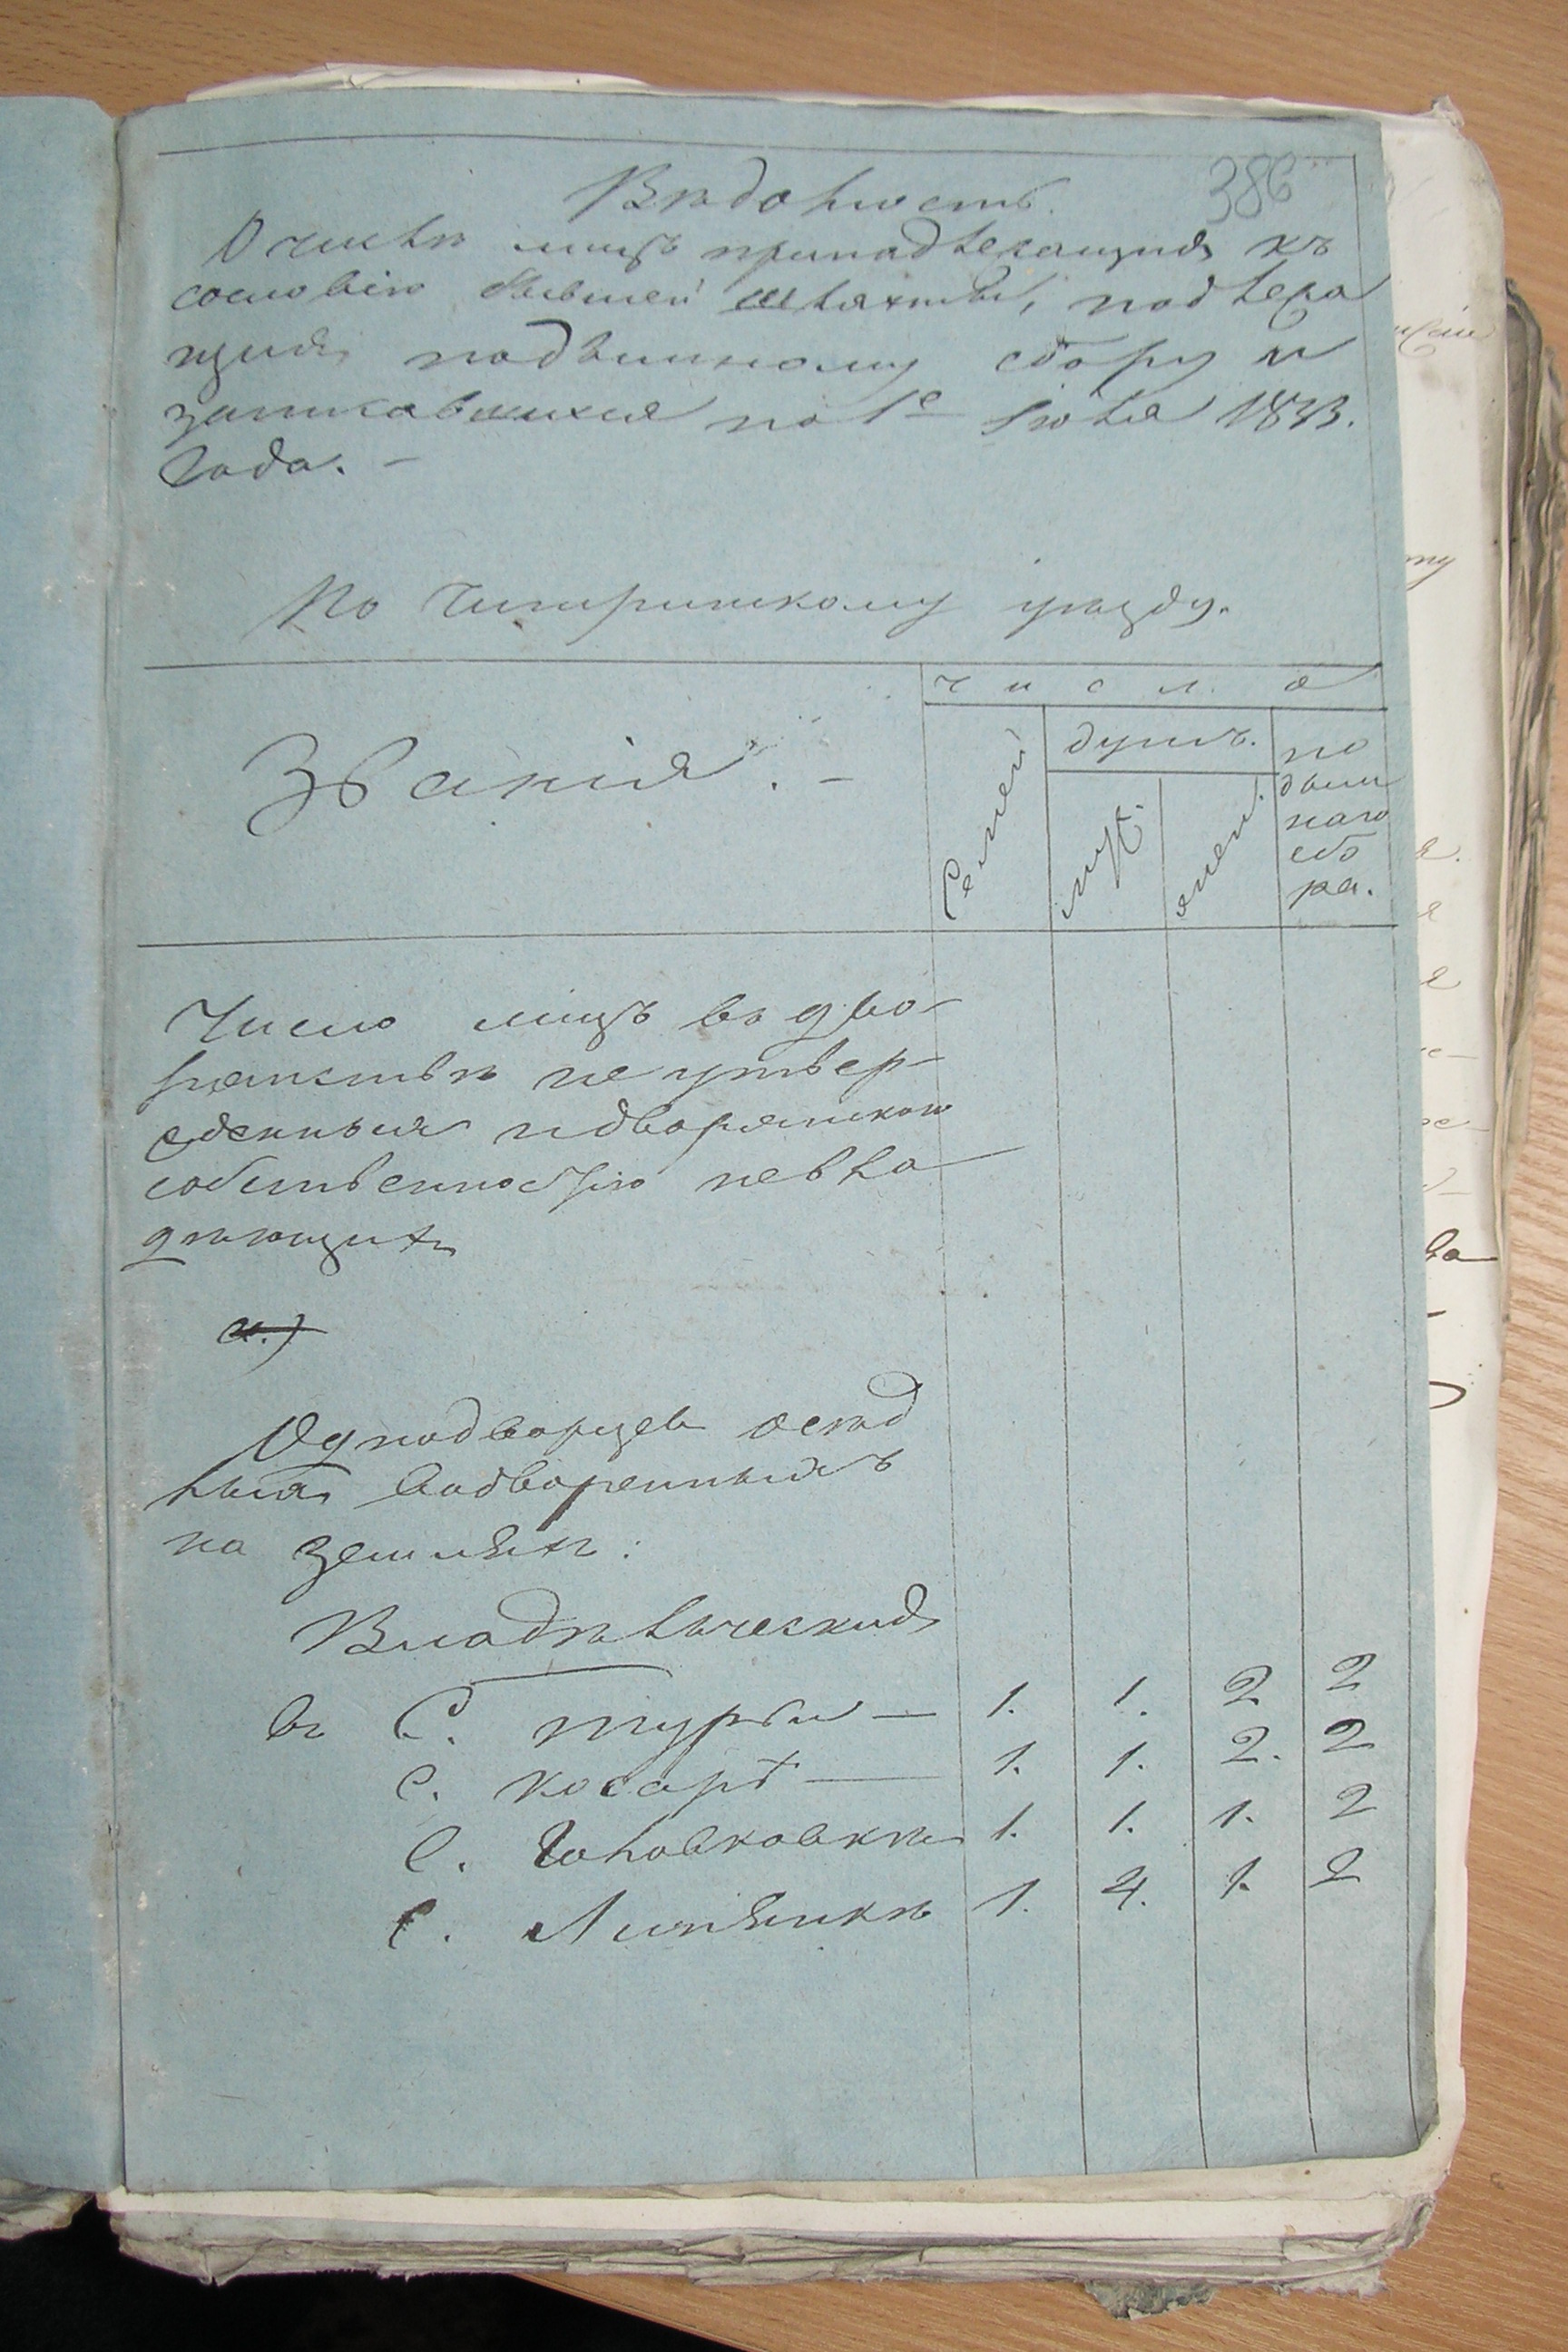 386
Вѣдомость
О числѣ лицъ принадлежащихъ къ
сословію бывшей шляхты, подлежа
щихъ подымному сбору и
записавшихся по 1е Іюля 1833.
Года. —
По Чигиринскому уѣзду.
Званія. —
число
Семей
душъ.
муж.
жен.
по
дым
наго
сбо
ра.
Число лицъ въ дво-
рянствѣ не утвер-
жденныхъ идворянскою
собственностію невла
дѣющихъ
а.)
Однодворцевъ осѣд
лыхъ водворенныхъ
на земляхъ:
Владѣльческихъ
въ С. Турьи — 1. 1. 2 2
С. Косарѣ — 1. 1. 2. 2
С. Головковкѣ 1. 1. 1. 2
С. Липянкѣ 1. 4. 1. 2